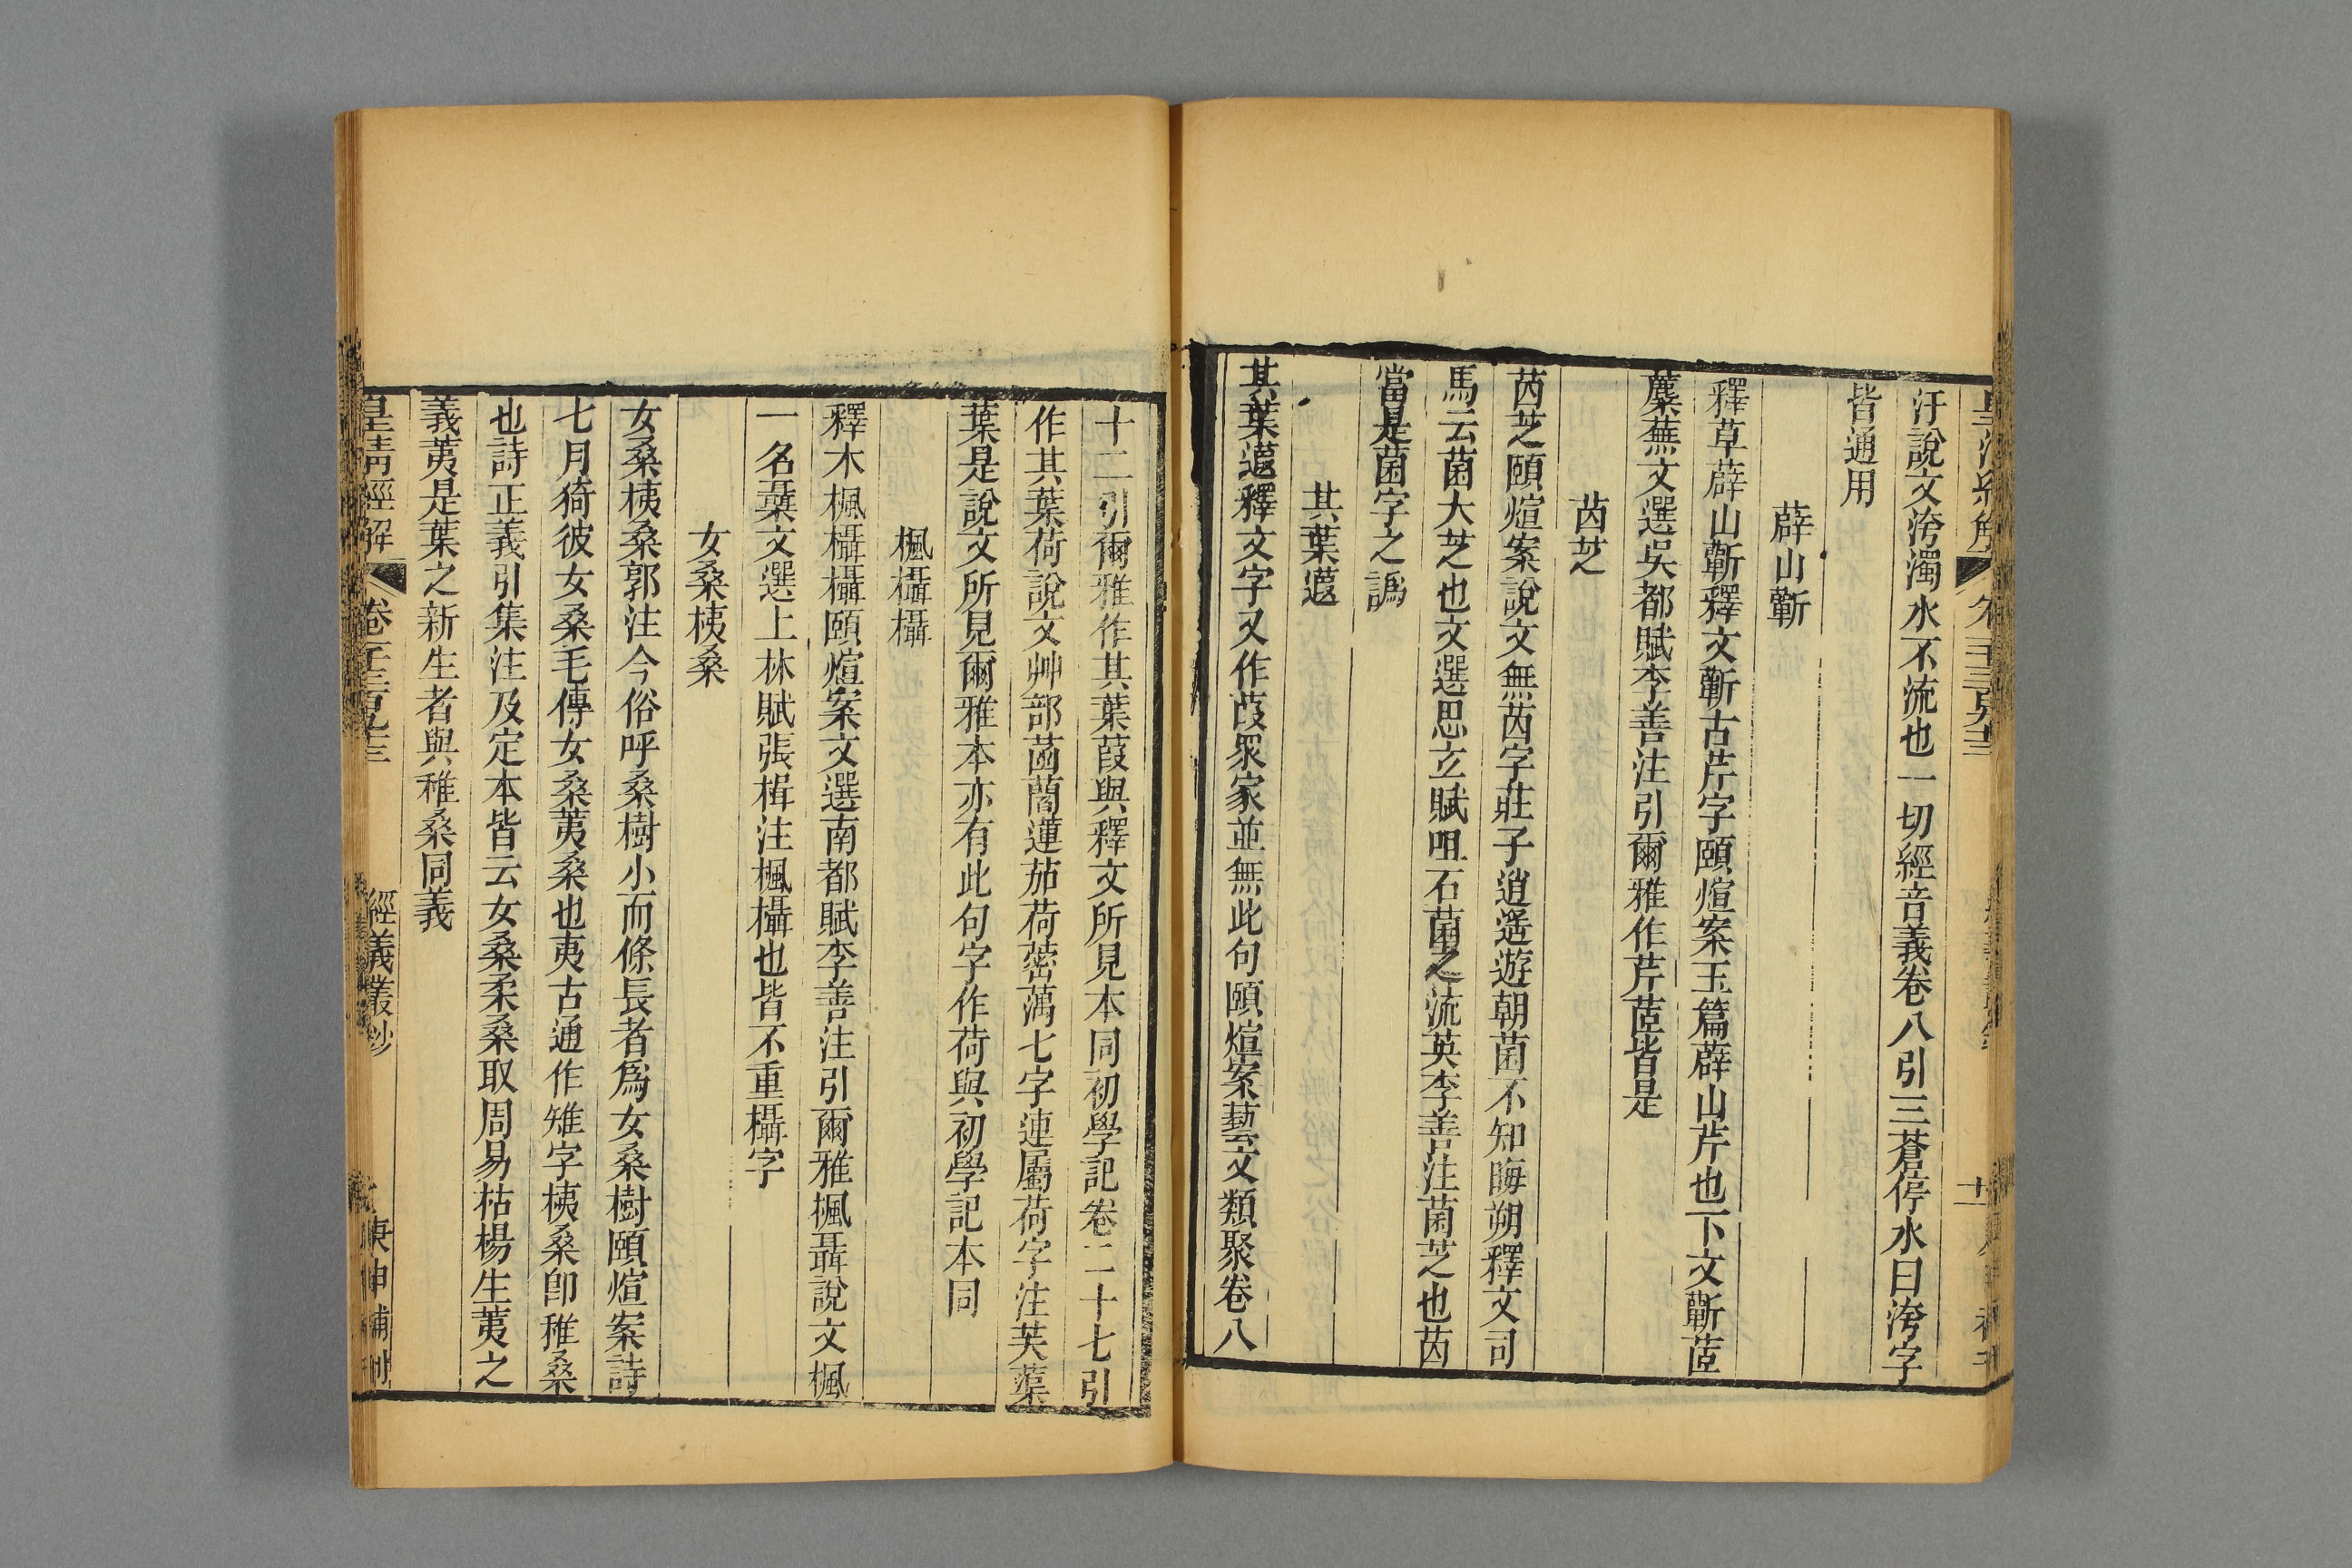 汙說文洿濁水不流也一切經音義卷八引三蒼停水曰洿字
皆通用
薜山蘄
釋草薜山蘄釋文蘄古芹字頤煊案玉篇薜山芹也下文蘄茝
蘪蕪文選吳都賦李善注引爾雅作芹茝皆是
苬芝
苬芝頤煊案說文無苬字莊子逍遙遊朝菌不知晦朔釋文司
馬云菌大芝也文選思立賦咀石菌之流英李善注菌芝也苬
當是菌字之譌
其葉蕸
其葉蕸釋文字又作葭眾家並無此句頤煊案藝文類聚卷八
十二引爾雅作其葉葭與釋文所見本同初學記卷二十七引
作其葉荷說文艸部菡藺蓮茄荷蔤蕅七字連屬荷字注芙蕖
葉是說文所見爾雅本亦有此句字作荷與初學記本同
楓欇欇
釋木楓欇欇頤煊案文選南都賦李善注引爾雅楓聶說文楓
一名欇文選上林賦張楫注楓欇也皆不重欇字
女桑桋桑
女桑桋桑郭注今俗呼桑樹小而條長者爲女桑樹頤煊案詩
七月猗彼女桑毛傳女桑荑桑也夷古通作雉字桋桑卽稚桑
也詩正義引集注及定本皆云女桑柔桑取周易枯楊生荑之
義荑是葉之新生者與稚桑同義
皇清經解 卷千三百九十三 經義叢鈔 庚申補刊